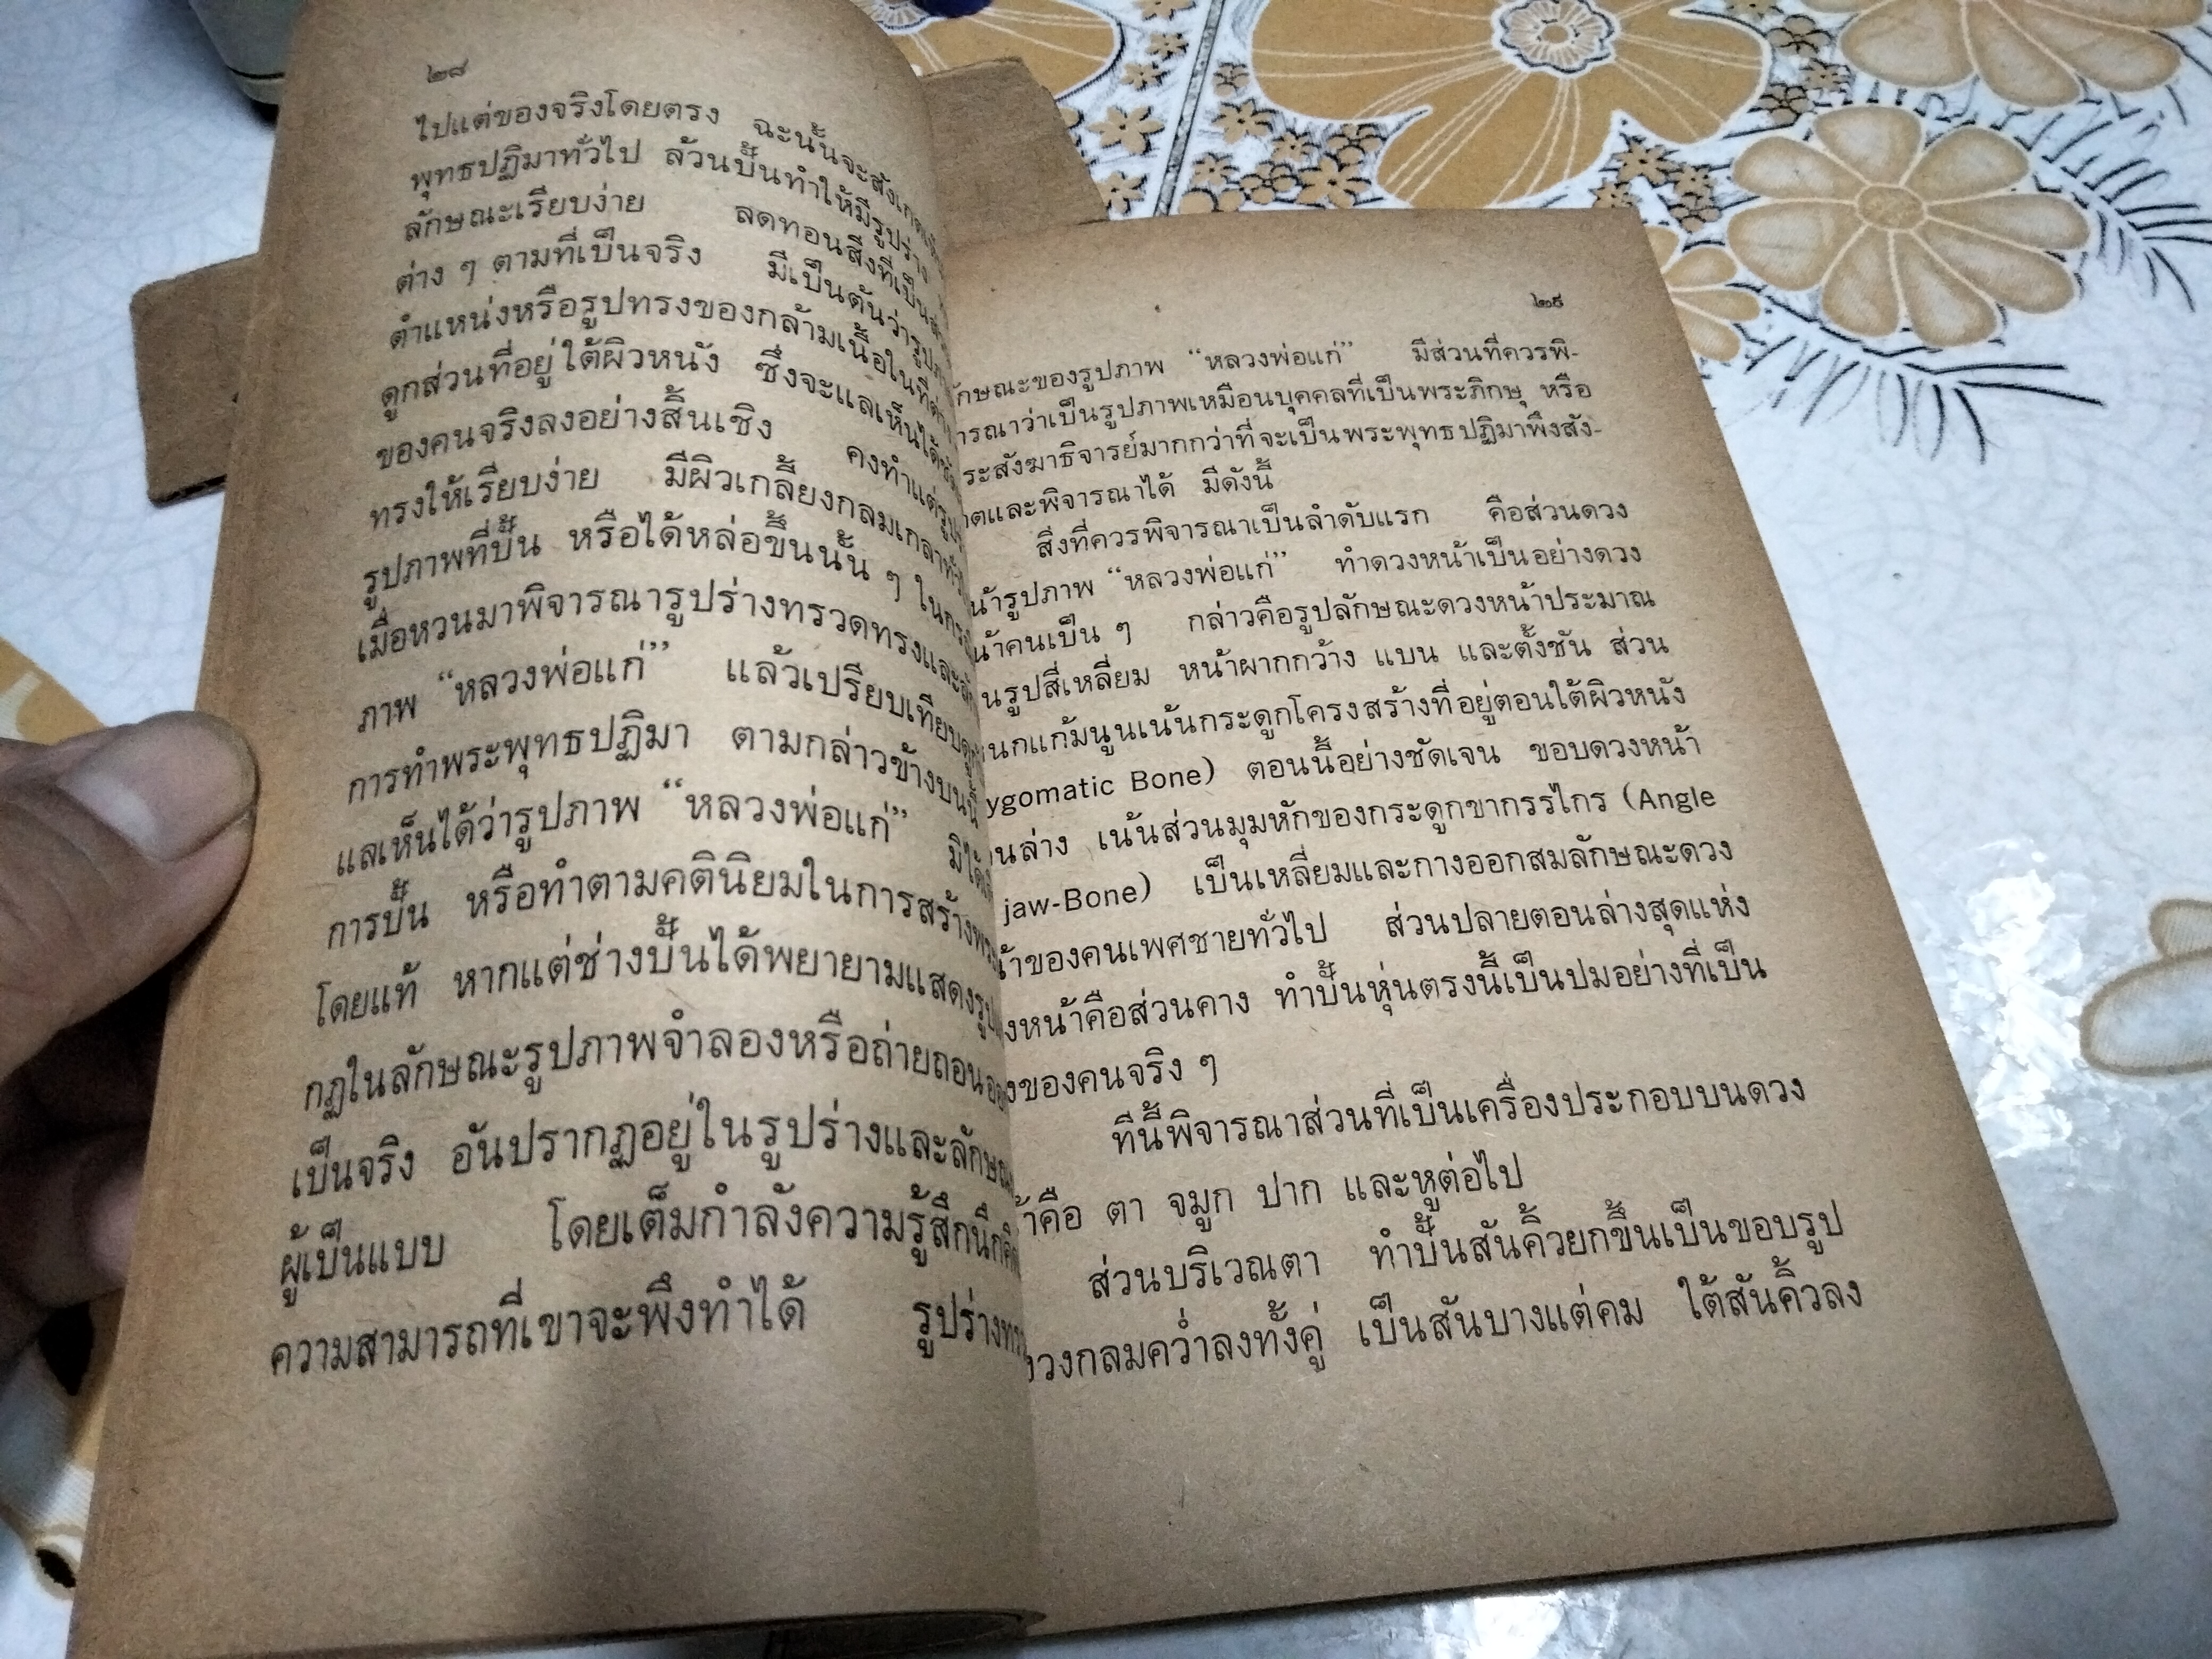 ๒๘
ไปแต่ของจริงโดยตรง ฉะนั้นจะสังเกต
พุทธปฏิมาทั่วไป ล้วนปั้นทำให้มีรูปร่าง
ลักษณะเรียบง่าย ลดทอนสิ่งที่เป็น
ต่าง ๆ ตามที่เป็นจริง มีเป็นต้นว่ารูป
ตำแหน่งหรือรูปทรงของกล้ามเนื้อในที่
ดูกส่วนที่อยู่ใต้ผิวหนัง ซึ่งจะแลเห็นได้
ของคนจริงลงอย่างสิ้นเชิง คงทำแต่
ทรงให้เรียบง่าย มีผิวเกลี้ยงกลมเกลา
รูปภาพที่ปั้น หรือได้หล่อขึ้นนั้น ๆ
เมื่อหวนมาพิจารณารูปร่างทรวดทรงและ
ภาพ “หลวงพ่อแก่” แล้วเปรียบเทียบ
การทำพระพุทธปฏิมา ตามกล่าวข้างบนนี้
แลเห็นได้ว่ารูปภาพ “หลวงพ่อแก่”
การปั้น หรือทำตามคตินิยมในการสร้าง
โดยแท้ หากแต่ช่างปั้นได้พยายามแสดง
กฏในลักษณะรูปภาพจำลองหรือถ่ายถอน
เป็นจริง อันปรากฏอยู่ในรูปร่างและ
ผู้เป็นแบบ โดยเต็มกำลังความรู้สึกนึก
ความสามารถที่เขาจะพึงทำได้ รูปร่าง
๒๙
กษณะของรูปภาพ “หลวงพ่อแก่” มีส่วนที่ควรพิ-
ารณาว่าเป็นรูปภาพเหมือนบุคคลที่เป็นพระภิกษุ หรือ
ระสังฆาธิจารย์มากกว่าที่จะเป็นพระพุทธปฏิมาพึงสัง-
ตและพิจารณาได้ มีดังนี้
สิ่งที่ควรพิจารณาเป็นลำดับแรก คือส่วนดวง
น้ารูปภาพ “หลวงพ่อแก่” ทำดวงหน้าเป็นอย่างดวง
น้าคนเป็น ๆ กล่าวคือรูปลักษณะดวงหน้าประมาณ
นรูปสี่เหลี่ยม หน้าผากกว้าง แบน และตั้งชัน ส่วน
นกแก้มนูนเน้นกระดูกโครงสร้างที่อยู่ตอนใต้ผิวหนัง
ygomatic Bone) ตอนนี้อย่างชัดเจน ขอบดวงหน้า
นล่าง เน้นส่วนมุมหักของกระดูกขากรรไกร (Angle
jaw-Bone) เป็นเหลี่ยมและกางออกสมลักษณะดวง
น้าของคนเพศชายทั่วไป ส่วนปลายตอนล่างสุดแห่ง
งหน้าคือส่วนคาง ทำปั้นหุ่นตรงนี้เป็นปมอย่างที่เป็น
งของคนจริง ๆ
ทีนี้พิจารณาส่วนที่เป็นเครื่องประกอบบนดวง
้าคือ ตา จมูก ปาก และหูต่อไป
ส่วนบริเวณตา ทำปั้นสันคิ้วยกขึ้นเป็นขอบรูป
วงกลมคว่ำลงทั้งคู่ เป็นสันบางแต่คม ใต้สันคิ้วลง